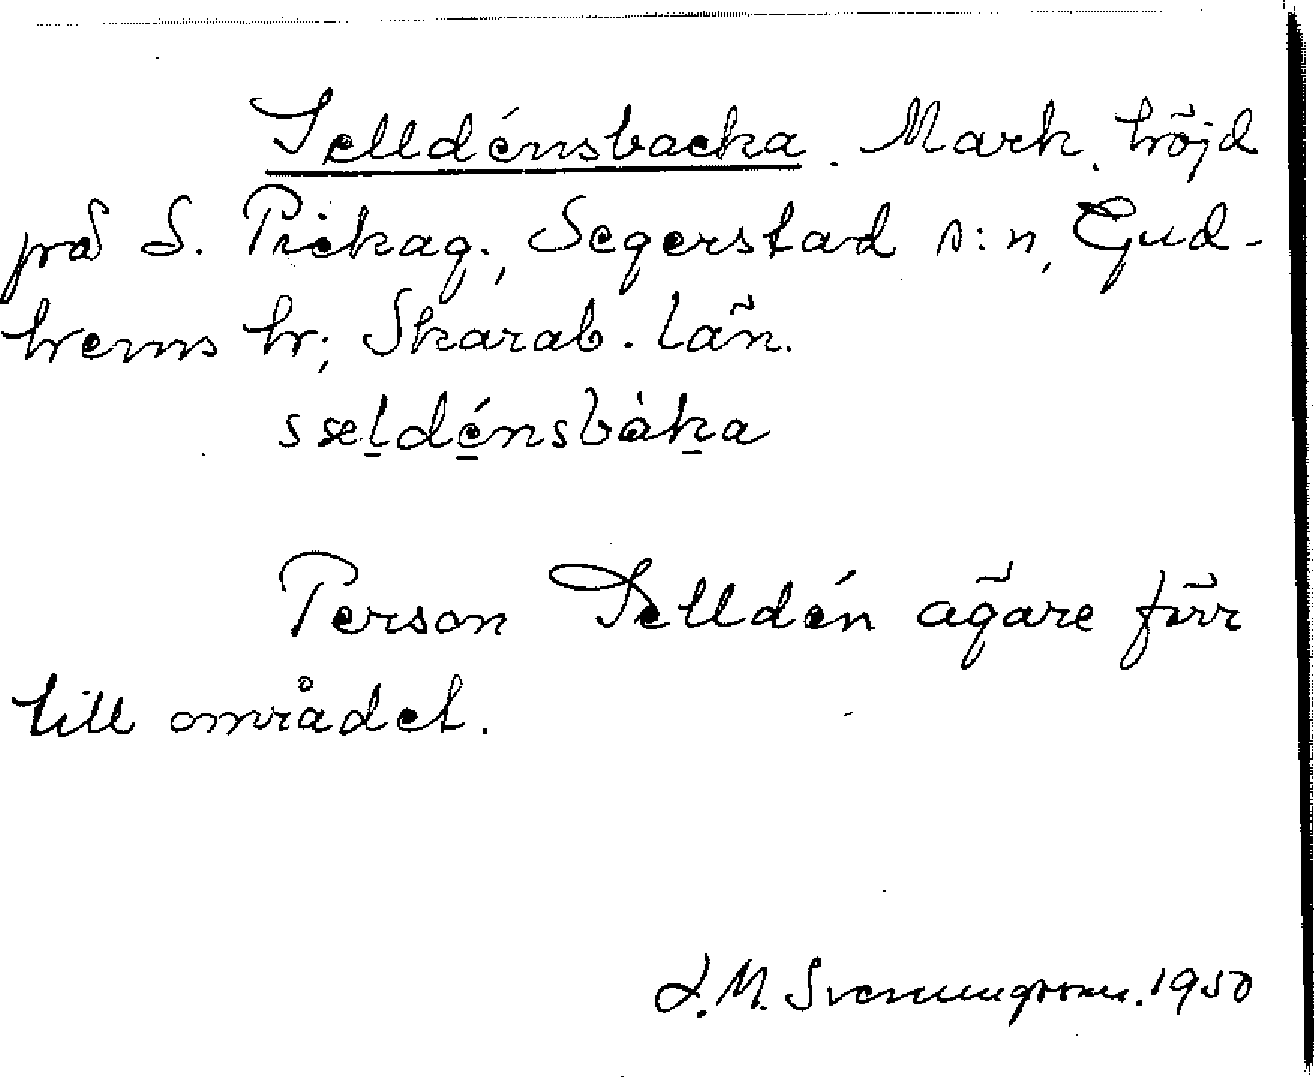 Selldénsbacka. Mark. höjd
på S. Pickag., Segerstad s:n, Gud-
hems hr; Skarab. län.
sseldénsbàka
Person Selldén ägare förr
till området.
S. M. Svenungsson. 1950